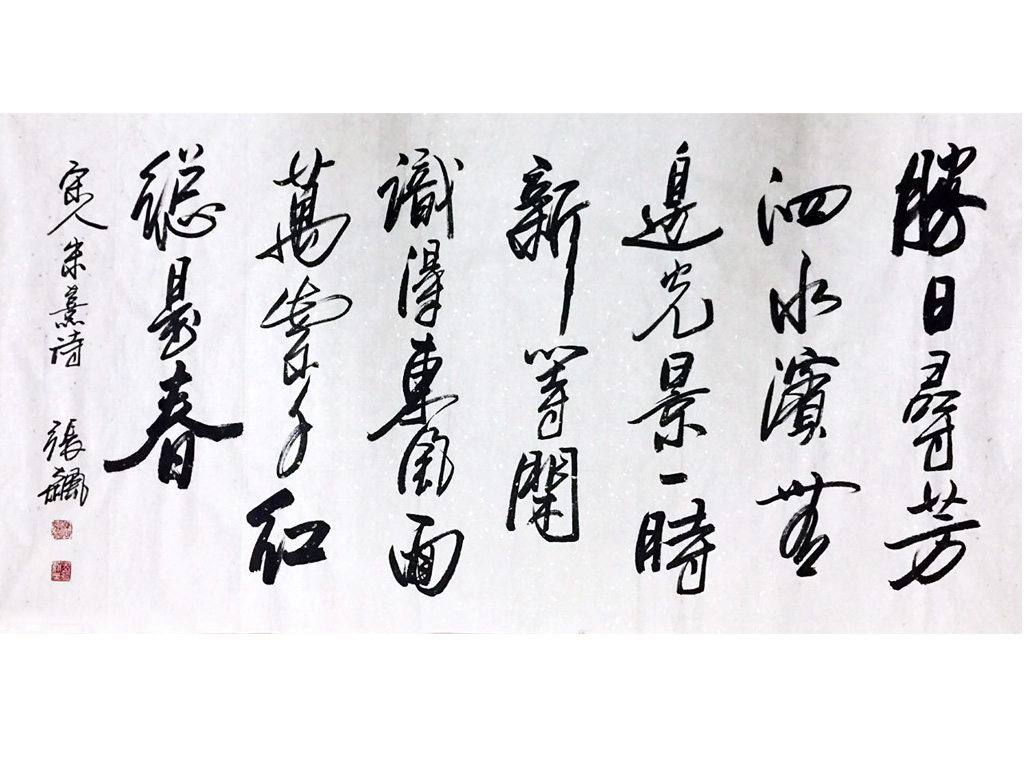 勝日尋芳
泗水濱無
邊光景一時
新等閑
識得東風面
萬紫千紅
總是春
宋人朱熹詩 張飆